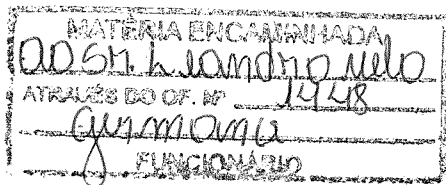 MATÉRIA ENCAMINHADA
ao Sr. Leandro Melo
ATRAVÉS DO OF. Nº 1448
Germana
FUNCIONÁRIO